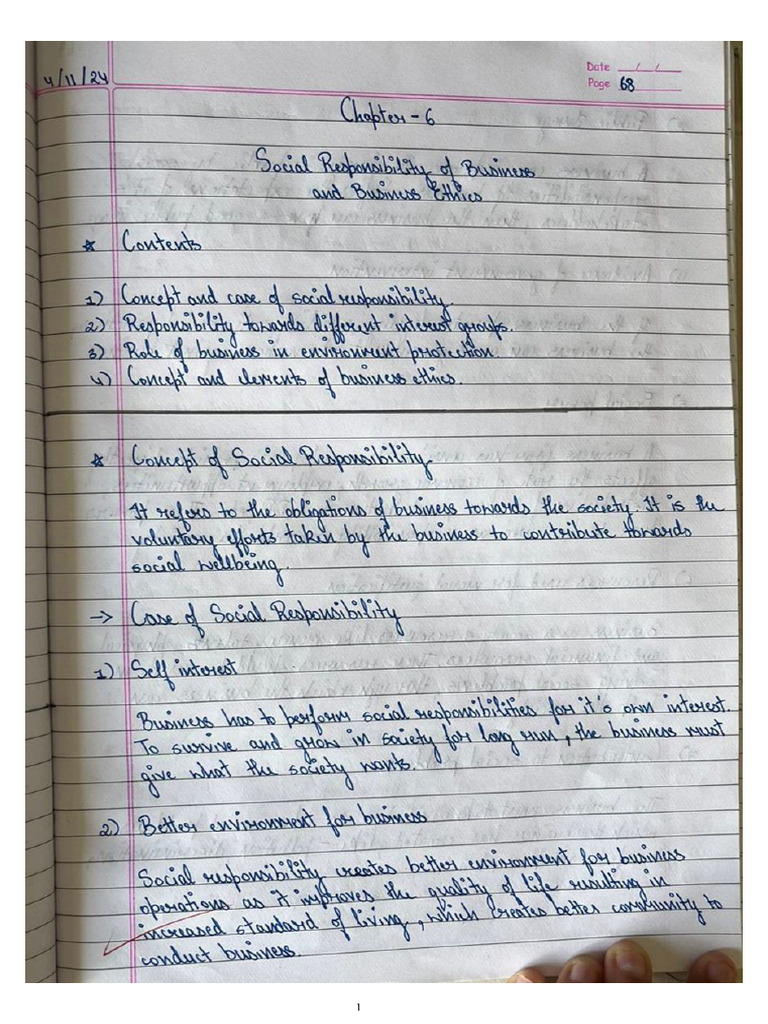 4/11/24
Date __/__/__
Page 68
Chapter - 6
Social Responsibility of Business
and Business Ethics
* Contents
1) Concept and case of social responsibility.
2) Responsibility towards different interest groups.
3) Role of business in environment protection.
4) Concept and elements of business ethics.
* Concept of Social Responsibility
It refers to the obligations of business towards the society. It is the
voluntary efforts taken by the business to contribute towards
social wellbeing.
→ Case of Social Responsibility
1) Self interest
Business has to perform social responsibilities for it's own interest.
To survive and grow in society for long run, the business must
give what the society wants.
2) Better environment for business
Social responsibility creates better environment for business
operations as it improves the quality of life resulting in
increased standard of living, which creates better community to
conduct business.
1